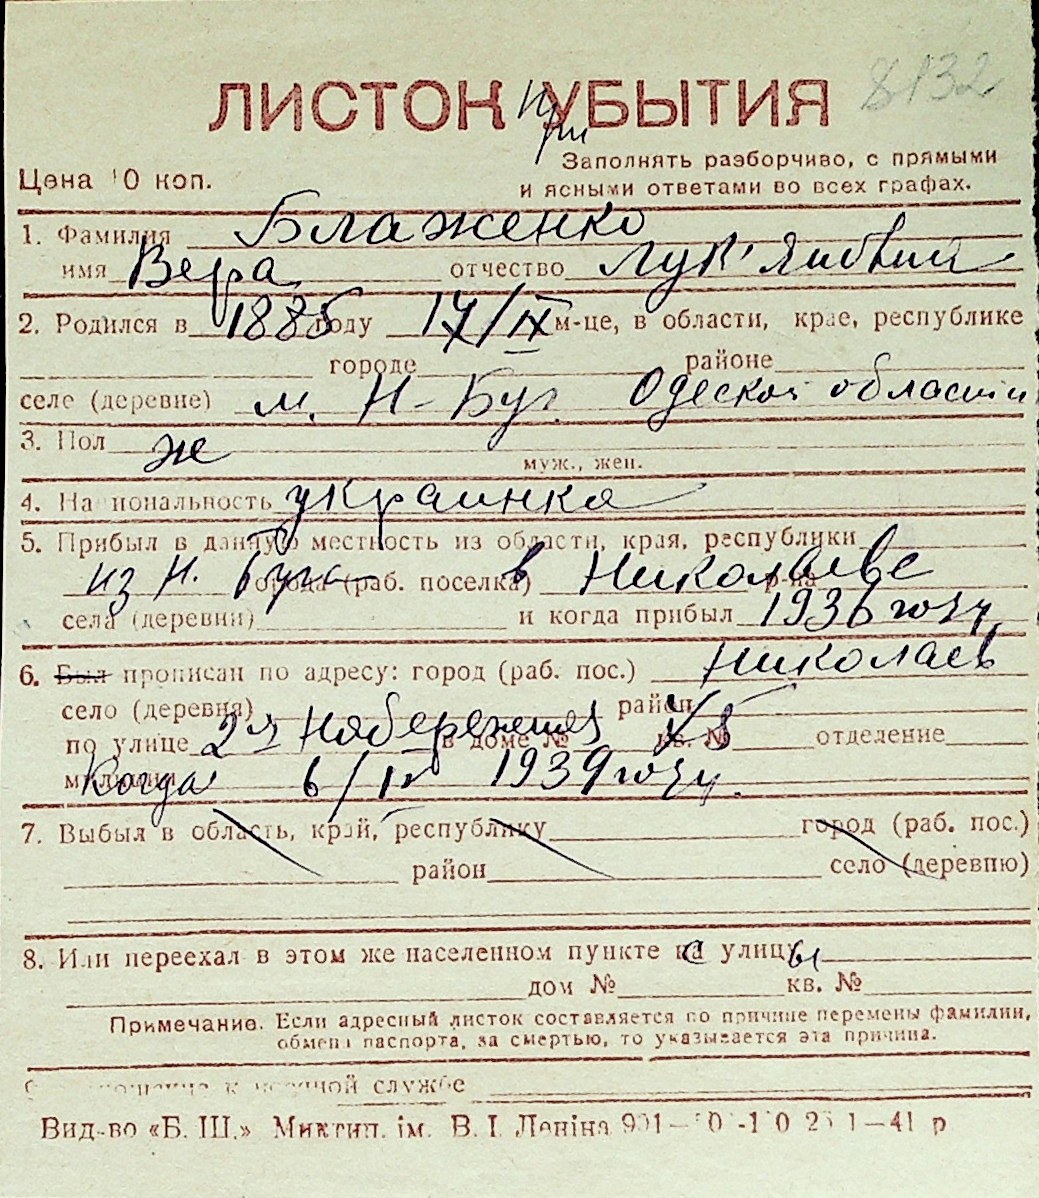 8132
ЛИСТОК УБЫТИЯ
при
Заполнять разборчиво, с прямыми
Цена 10 коп.
и ясными ответами во всех графах.
1. Фамилия Блаженко
имя Вера отчество
2. Родился в 1885 году 17/IX м-це, в области, крае, республике
городе районе
селе (деревне) м. Н-Буг Одеской области
3. Пол ж
муж., жен.
4. Национальность украинка
5. Прибыл в данную местность из области, края, республики
из Н. Буга города (раб. поселка) в Николаеве р-на
села (деревни) и когда прибыл 1936 году
6. Был прописан по адресу: город (раб. пос.) Николаев
село (деревня) район
по улице 2 я Набережная в доме № кв. № отделение
милиции Когда 6/IV 1939 году.
7. Выбыл в область, край, республику город (раб. пос.)
район село (деревню)
8. Или переехал в этом же населенном пункте с улицы
дом № кв. №
Примечание. Если адресный листок составляется по причине перемены фамилии,
обмена паспорта, за смертью, то указывается эта причина.
к военной службе
Вид-во «Б. Ш.» Миктип. ім. В. І. Леніна